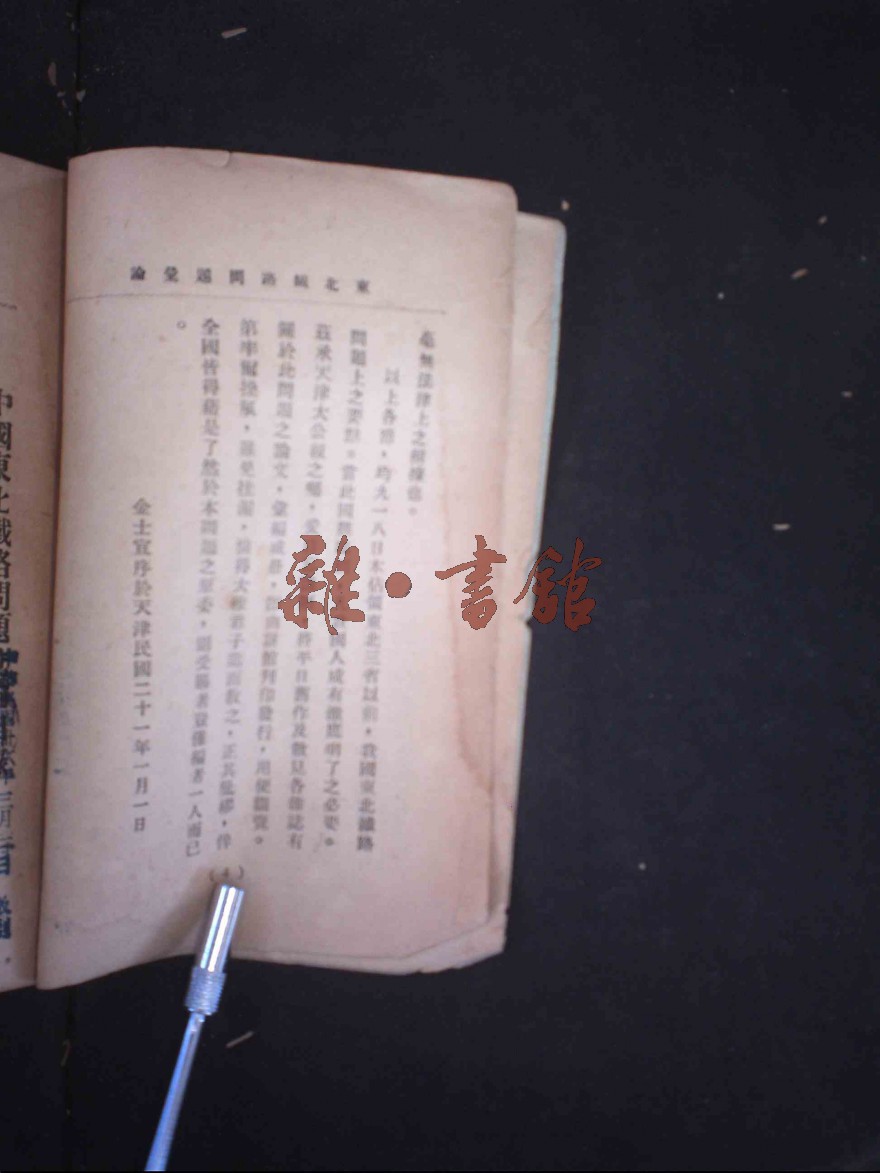 東北鐵路問題彙論
毫無法律上之根據也。
以上各路,均九一八日本佔據東北三省以前,我國東北鐵路
問題上之要點。當此國際人咸有徹底明了之必要。
茲承天津大公報之囑,爰將平日舊作及散見各雜誌有
關於此問題之論文,彙編成冊,商務印書館刊印發行,用便翻覽。
第率爾操觚,難免挂漏,倘得大雅君子進而教之,正其紕繆,俾
全國皆得藉是了然於本問題之原委,則受賜者豈僅編者一人而已
。
金士宣序於天津民國二十一年一月一日
(4)
中國東北鐵路問題
雜·書館